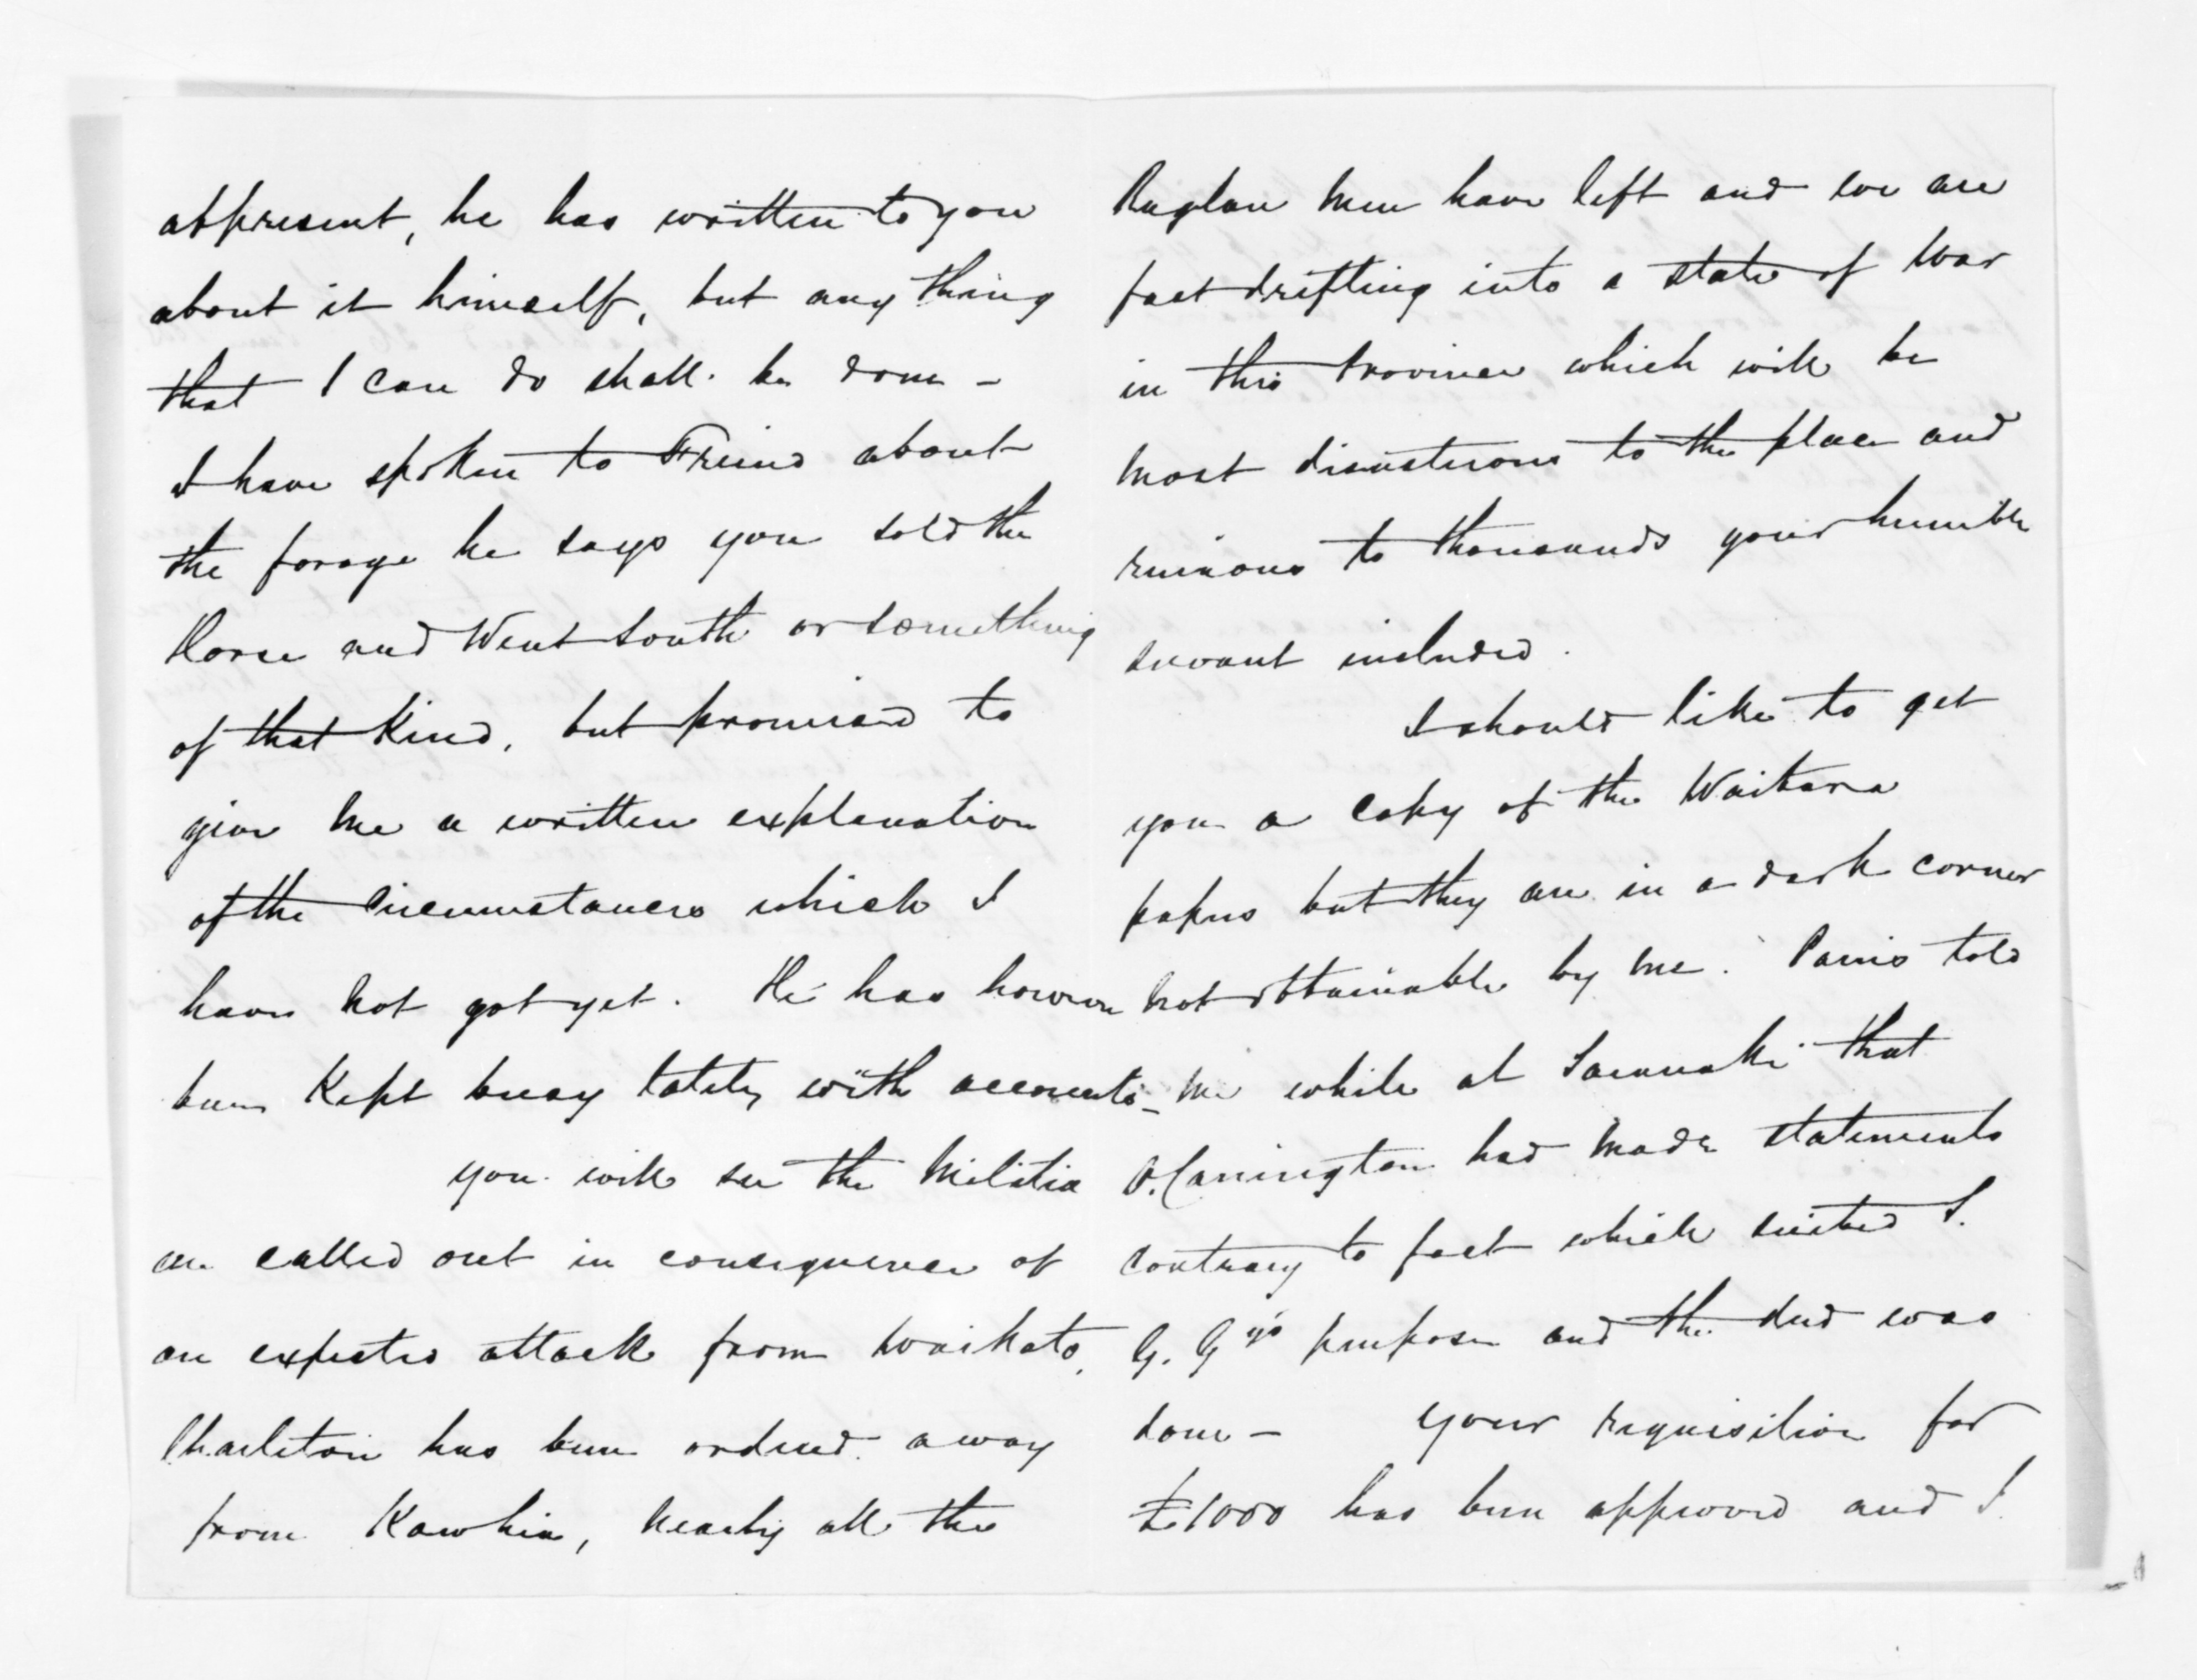 at present, he has written to you
about it himself, but any thing
that I can do shall be done -
I have spoken to Freind about
the forage he says you sold the
Horse and Went South or something
of that kind, but promised to
give me a written explanation
of the circumstances which I
have not got yet. He has however
been kept busy lately with accounts -
you will see the Militia
are called out in consequence of
an expected attack from Waikato,
Charleton has been ordered away
from Kawhia, nearly all the
Raglan men have left and we are
fast drifting into a state of War
in this Province which will be
most disastrous to the place and
ruinous to thousands your humble
servant included.
I should like to get
you a copy of the Waitara
papers but they are in a dark corner
not obtainable by me. Parris told
me while at Taranaki that
O. Carrington had made statements
contrary to fact which suited S.
G. G.y's purpose and the deed was
done - Your requisition for
£1000 has been approved and I